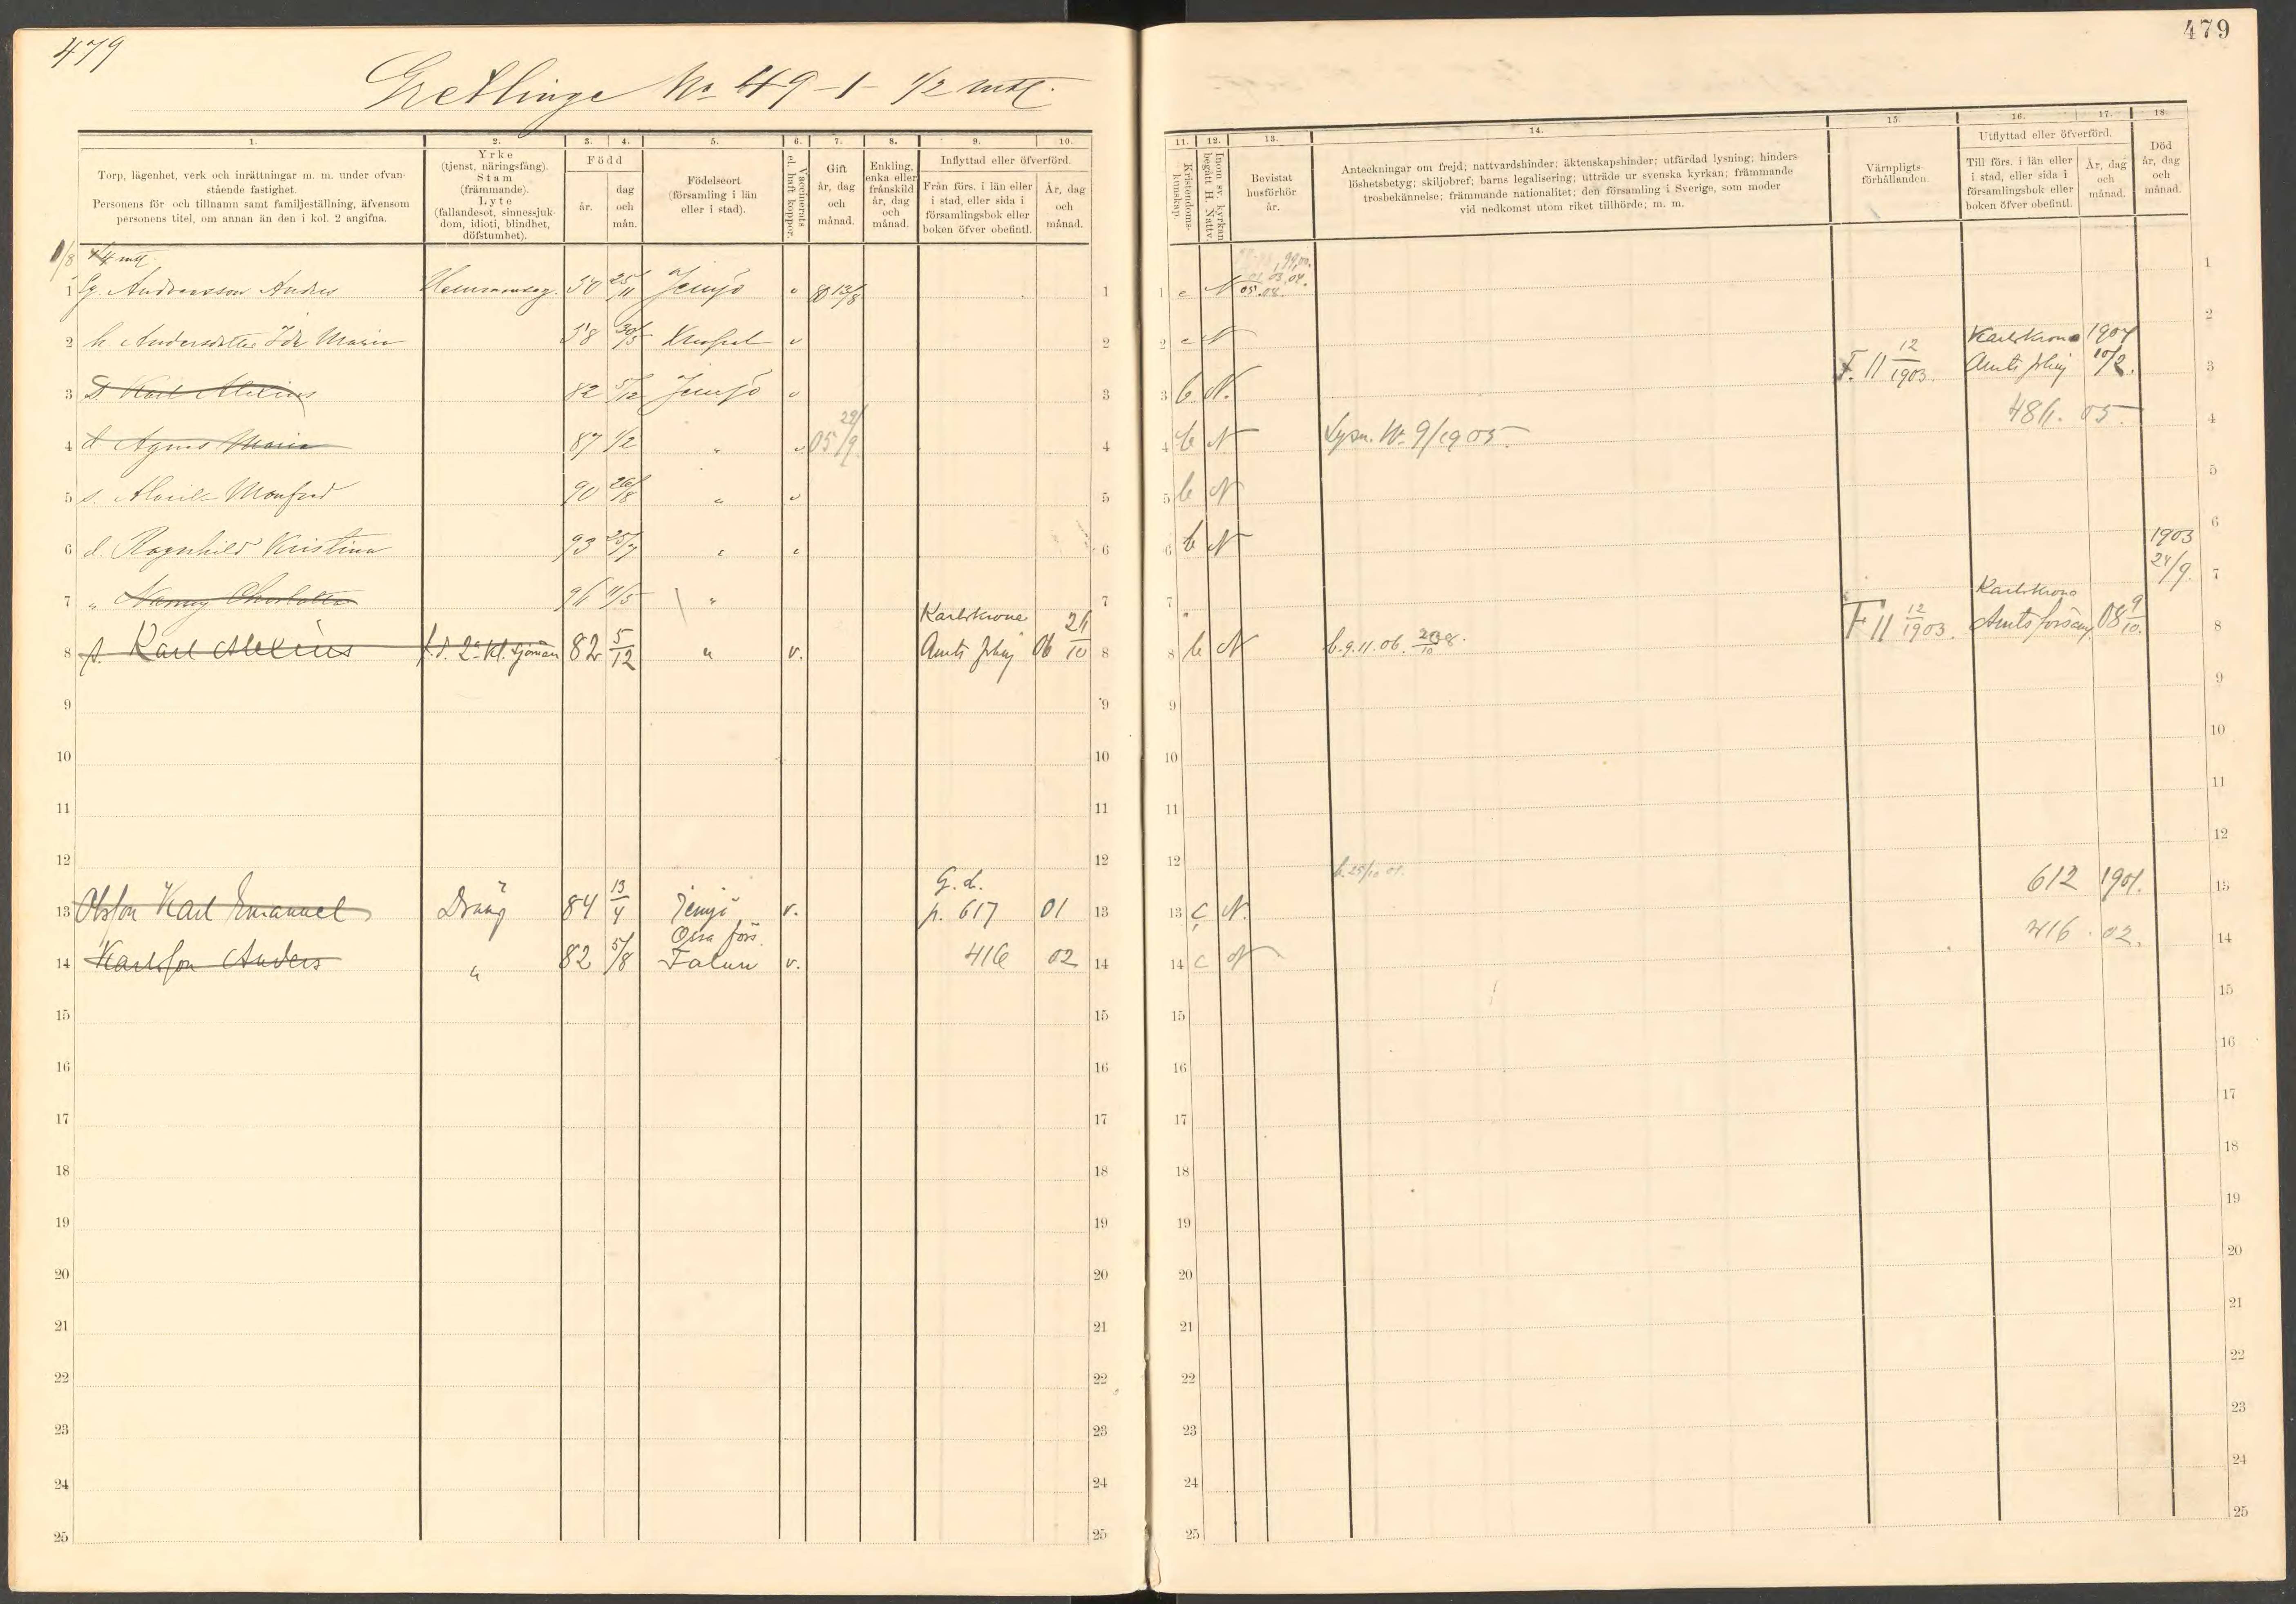 479
479
Gretlinge No 49-1- 1/2 mtl.
1. 2. 3. 4. 5. 6. 7. 8. 9. 10.
Torp, lägenhet, verk och inrättningar m. m. under ofvan-
stående fastighet.
Personens för- och tillnamn samt familjeställning, äfvensom
personens titel, om annan än den i kol. 2 angifna.
Yrke
(tjenst, näringsfång).
Stam
(främmande).
Lyte
(fallandesot, sinnessjuk-
dom, idioti, blindhet,
döfstumhet).
Född
år.
dag
och
mån.
Födelseort
(församling i län
eller i stad).
Vaccinerats
el. haft koppor.
Gift
år, dag
och
månad.
Enkling,
enka eller
frånskild
år, dag
och
månad.
Inflyttad eller öfverförd.
Från förs. i län eller
i stad, eller sida i
församlingsbok eller
boken öfver obefintl.
År, dag
och
månad.
11. 12. 13. 14. 15. 16. 17. 18.
Kristendoms-
kunskap.
Inom sv. kyrkan
begått H. Nattv.
Bevistat
husförhör
år.
Anteckningar om frejd; nattvardshinder; äktenskapshinder; utfärdad lysning; hinders-
löshetsbetyg; skiljobref; barns legalisering; utträde ur svenska kyrkan; främmande
trosbekännelse; främmande nationalitet; den församling i Sverige, som moder
vid nedkomst utom riket tillhörde; m. m.
Värnpligts-
förhållanden.
Utflyttad eller öfverförd.
Till förs. i län eller
i stad, eller sida i
församlingsbok eller
boken öfver obefintl.
År, dag
och
månad.
Död
år, dag
och
månad.
1/8 1/4 mtl.
1 Andreasson Anders Hemmansäg. 54 25/11 Jemjö v 80 13/8 1
1 c N 05.08. 1
2 h Andersdotter Ida Maria 58 30/5 v 2
2 c N 2
3 s Karl Alexius 82 5/12 Jemjö v 3
3 b N. F. 11 12/1903. Karlskrona Amts 1904 10/2. 3
4 d Agnes Maria 87 1/2 " v 05 29/9 4
4 b N Lysn. No 9/1905. 486. 05. 4
5 s. Manfred 90 26/8 " v 5
5 b N 5
6 d. Ragnhild Kristina 93 25/7 " 6
6 b N 6
7 " Nanny Charlotta 96 11/5 " 7
7 1903 24/9. 7
8 s. Karl Alexius f.d. 2a kl. sjöman 82 5/12 " v. Karlskrona Amts 06 26/10 8
8 b N b. 9.11.06. F 11 12/1903. Karlskrona Amts församl. 08 9/10. 8
9 9 9 9
10 10 10 10
11 11 11 11
12 12 12 12
13 Olsson Karl Emanuel Dräng 84 13/4 Jemjö v. G. d. p. 617 01 13
13 c N. b. 25/10 01. 612 1901. 13
14 Karlsson Anders " 82 5/8 Orsa förs. Falun v. 416 02 14
14 c N 416. 02. 14
15 15 15 15
16 16 16 16
17 17 17 17
18 18 18 18
19 19 19 19
20 20 20 20
21 21 21 21
22 22 22 22
23 23 23 23
24 24 24 24
25 25 25 25